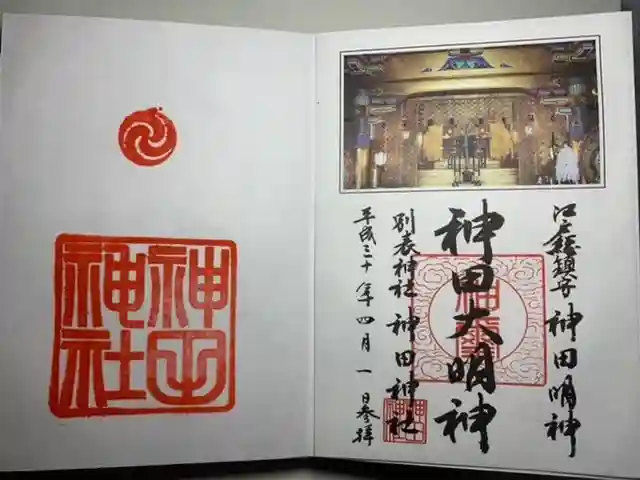 江戸總鎮守 神田明神
神田大明神
別表神社 神田神社
平成三十年四月一日参拝
神田
神社